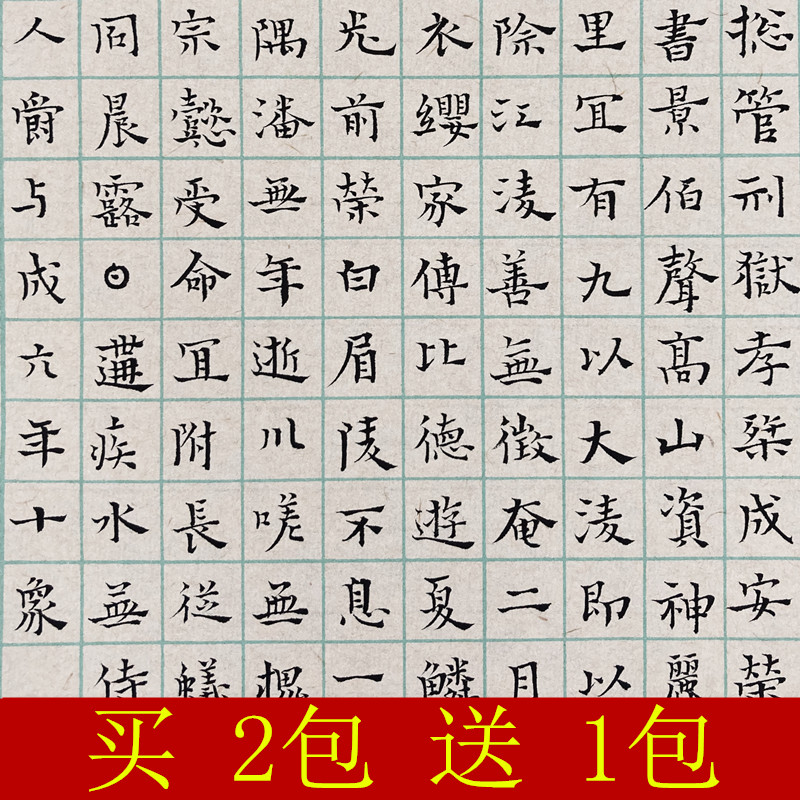 揔管刑獄孝桀成安荣
書景佰聲髙山資神麗
里冝有九以大淩即以
除江淩善無徵奄二月
衣纓家傳比德遊夏鱗
光前榮白眉陵不息一
隅潘無年逝川嗟無槐
宗懿受命冝附長從蟻
同晨露𡆠遘疾水無侍
人爵与成六年十象
买 2包 送 1包